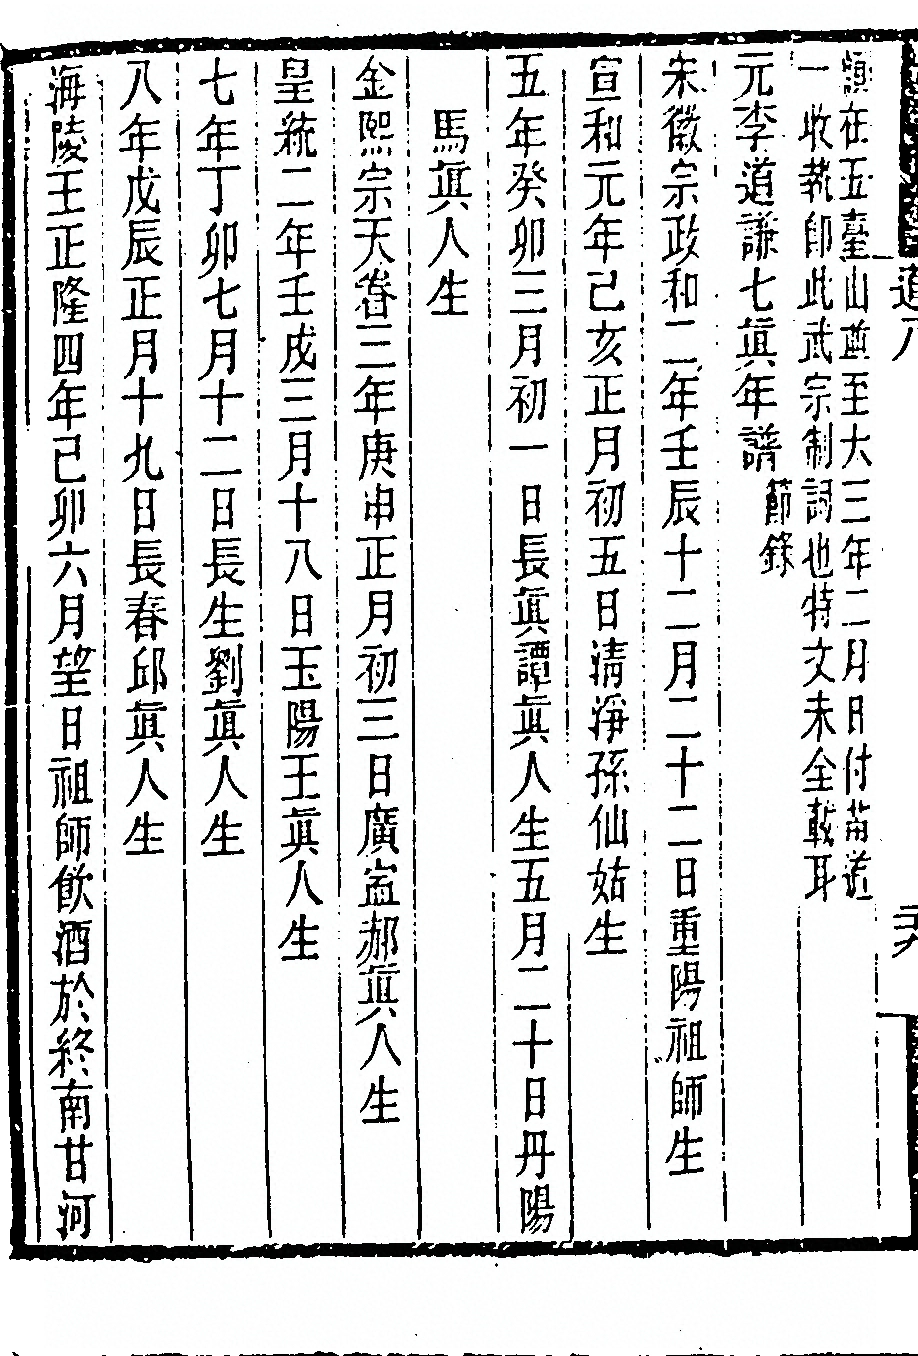 在五臺山 至大三年二月日付苗道
一收執卽此武宗制詞也特文未全載耳
元李道謙七眞年譜 節錄
宋徽宗政和二年壬辰十二月二十二日重陽祖師生
宣和元年己亥正月初五日清淨孫仙姑生
五年癸卯三月初一日長眞譚眞人生五月二十日丹陽
馬眞人生
金熙宗天眷三年庚申正月初三日廣寍郝眞人生
皇統二年壬戌三月十八日玉陽王眞人生
七年丁卯七月十二日長生劉眞人生
八年戊辰正月十九日長春邱眞人生
海陵王正隆四年己卯六月望日祖師飲酒於終南甘河